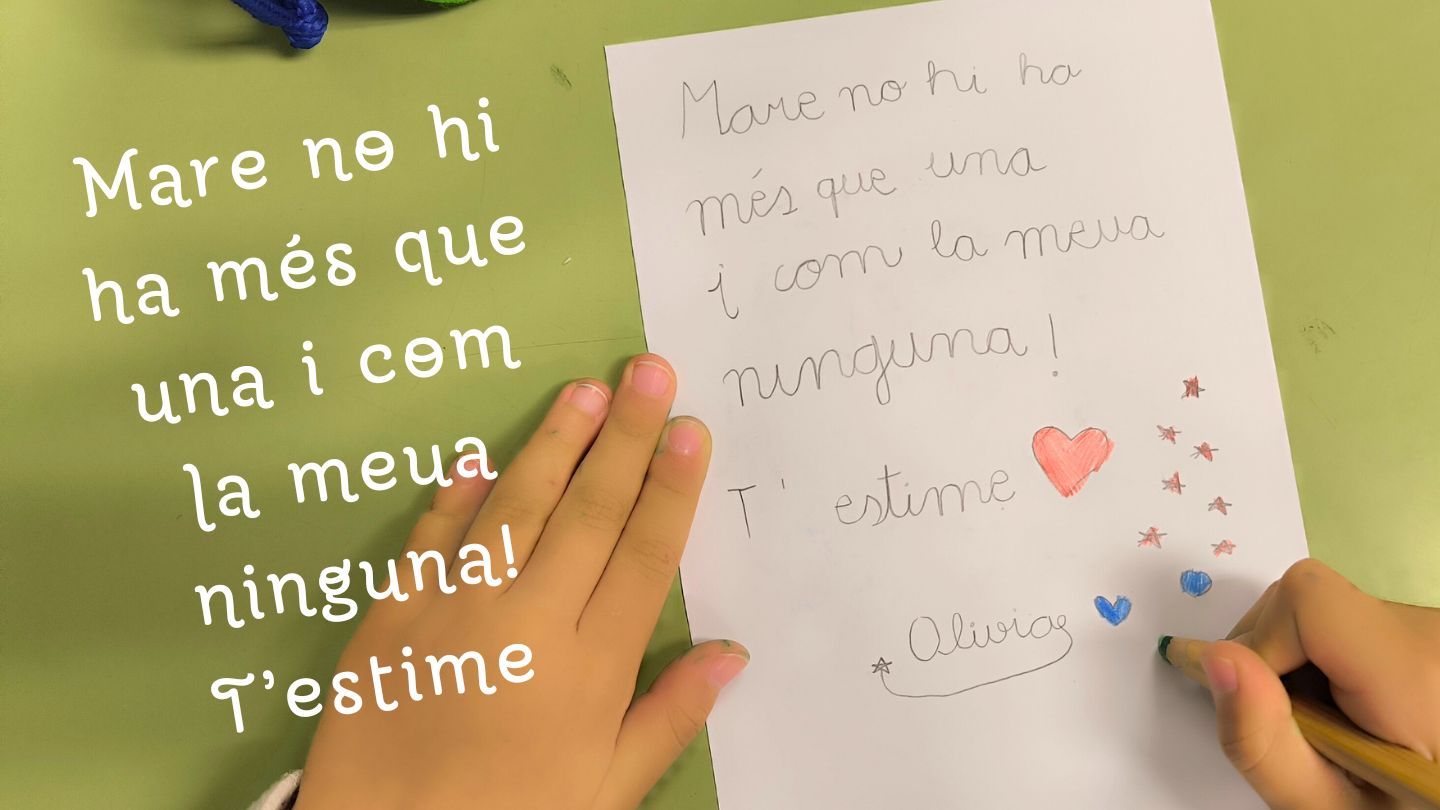 Mare no hi
ha més que
una i com
la meua
ninguna!
T'estime
Mare no hi ha
més que una
i com la meua
ninguna!
T' estime
Olivia